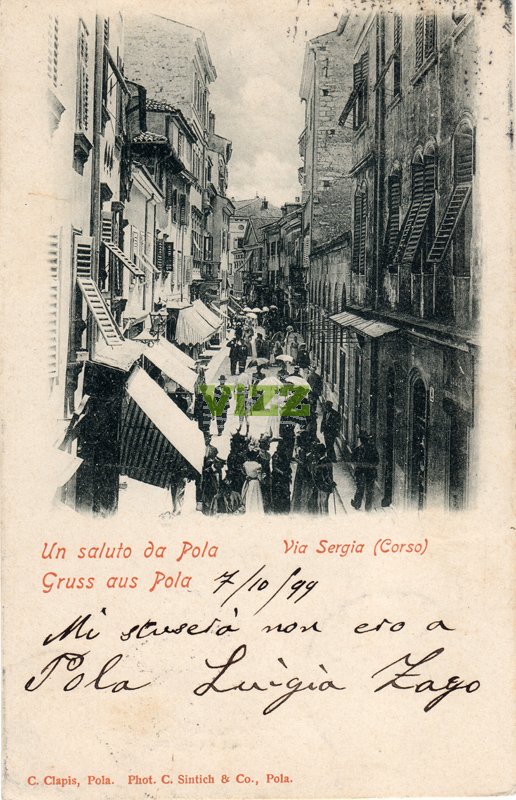 vizz
Un saluto da Pola Via Sergia (Corso)
Gruss aus Pola 7/10/99
Mi scuserà non ero a
Pola Luigia Zago
C. Clapis, Pola. Phot. C. Sintich & Co., Pola.